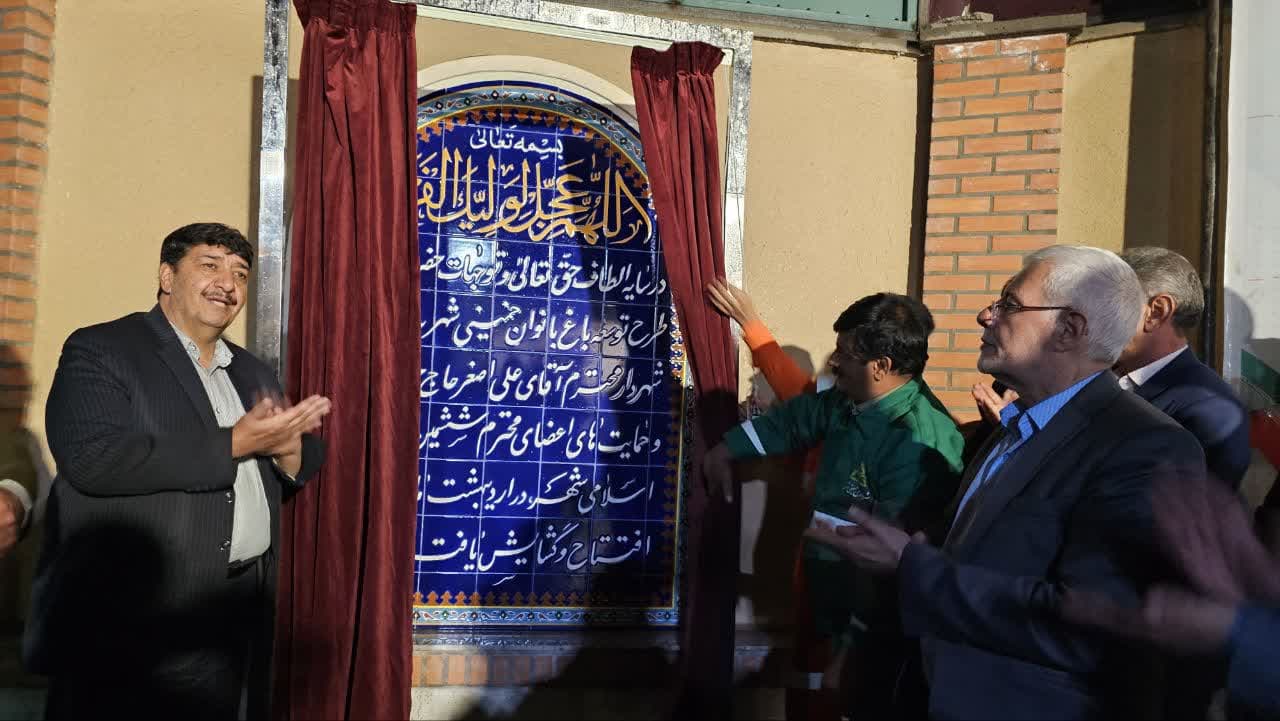 بسمه تعالی
اللهم عجل لولیک الف
در سایه الطاف حق تعالی و توجهات حض
طرح توسعه باغ بانوان خمینی شهر
شهردار محترم آقای علی اصغر حاج
و حمایت های اعضای محترم ششمین
اسلامی شهر، در اردیبهشت
افتتاح و گشایش یافت